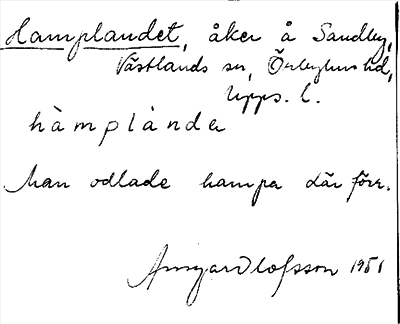 Hamplandet, åker å Sandby,
Västlands sn, Örbyhus hd,
Upps. l.
hàmplánde
Man odlade hampa där förr.
Armgard Olofsson 1951